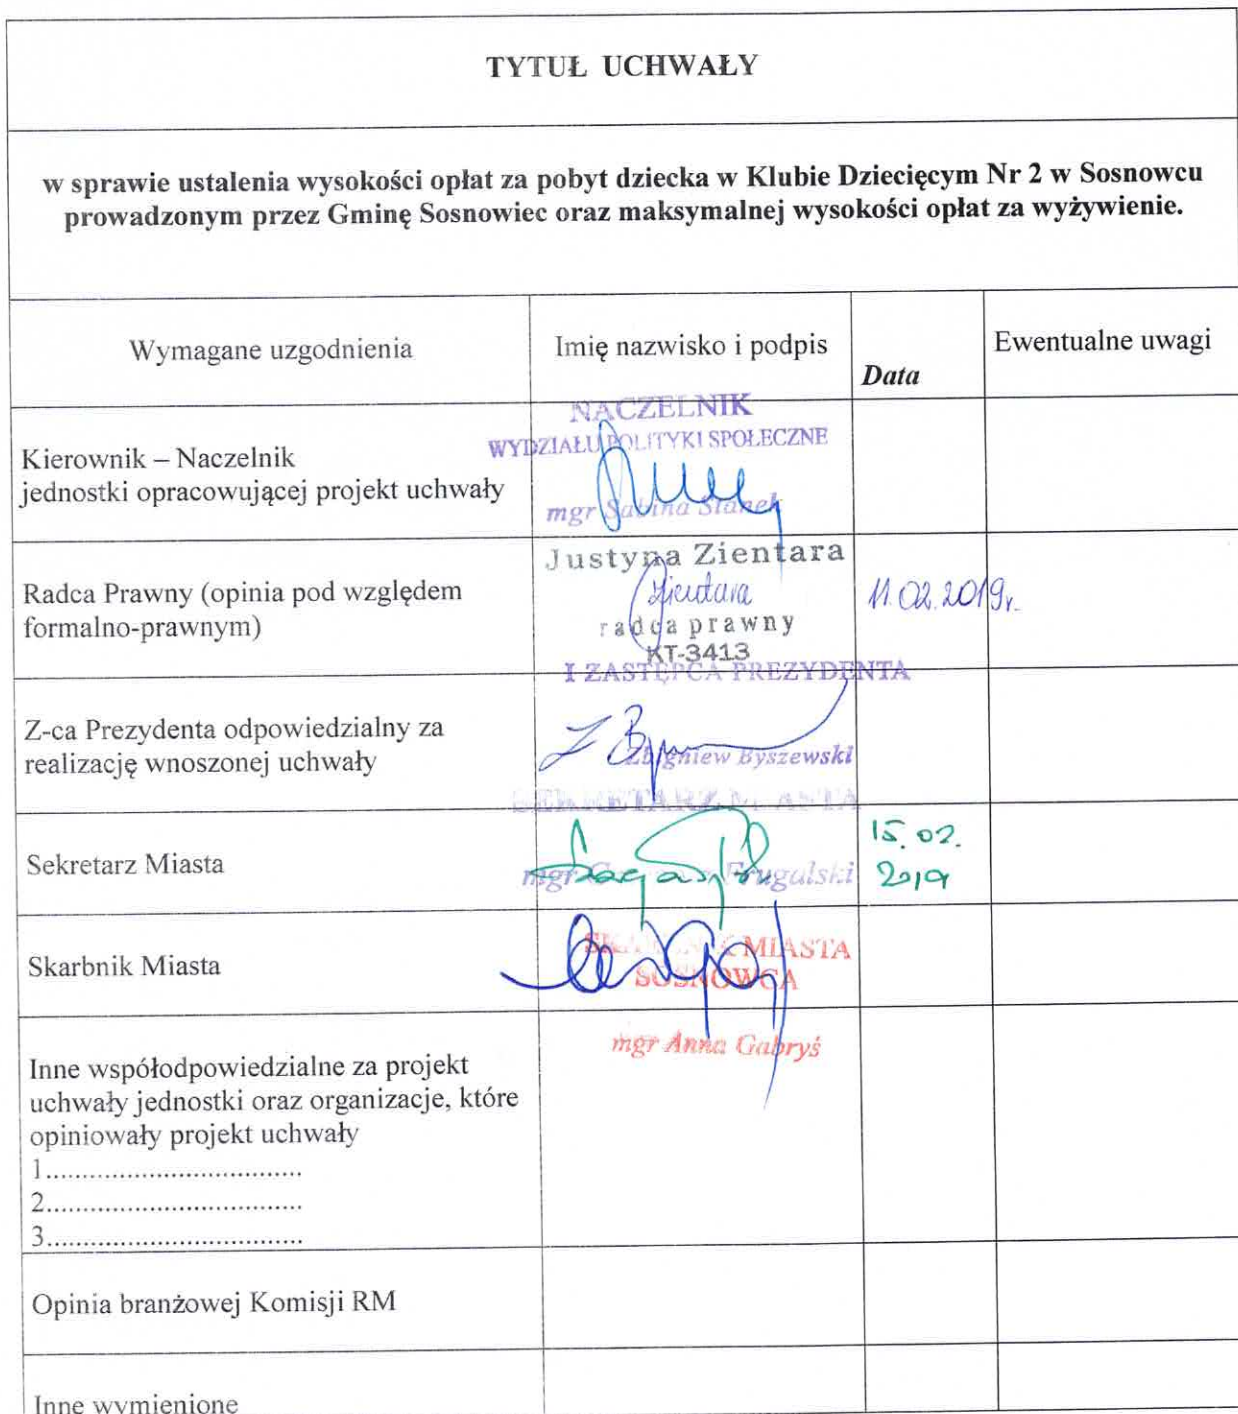 TYTUŁ UCHWAŁY
w sprawie ustalenia wysokości opłat za pobyt dziecka w Klubie Dziecięcym Nr 2 w Sosnowcu
prowadzonym przez Gminę Sosnowiec oraz maksymalnej wysokości opłat za wyżywienie.
Wymagane uzgodnienia
Imię nazwisko i podpis
Data
Ewentualne uwagi
Kierownik – Naczelnik
jednostki opracowującej projekt uchwały
NACZELNIK
WYDZIAŁU POLITYKI SPOŁECZNE
mgr Sabina Stanek
Radca Prawny (opinia pod względem
formalno-prawnym)
Justyna Zientara
Zientara
radca prawny
KT-3413
11.02.2019r.
Z-ca Prezydenta odpowiedzialny za
realizację wnoszonej uchwały
I ZASTĘPCA PREZYDENTA
Zbigniew Byszewski
Sekretarz Miasta
SEKRETARZ MIASTA
mgr Frugalski
15.02.
2019
Skarbnik Miasta
SKARBNIK MIASTA
SOSNOWCA
mgr Anna Gabryś
Inne współodpowiedzialne za projekt
uchwały jednostki oraz organizacje, które
opiniowały projekt uchwały
1...................................
2...................................
3...................................
Opinia branżowej Komisji RM
Inne wymienione